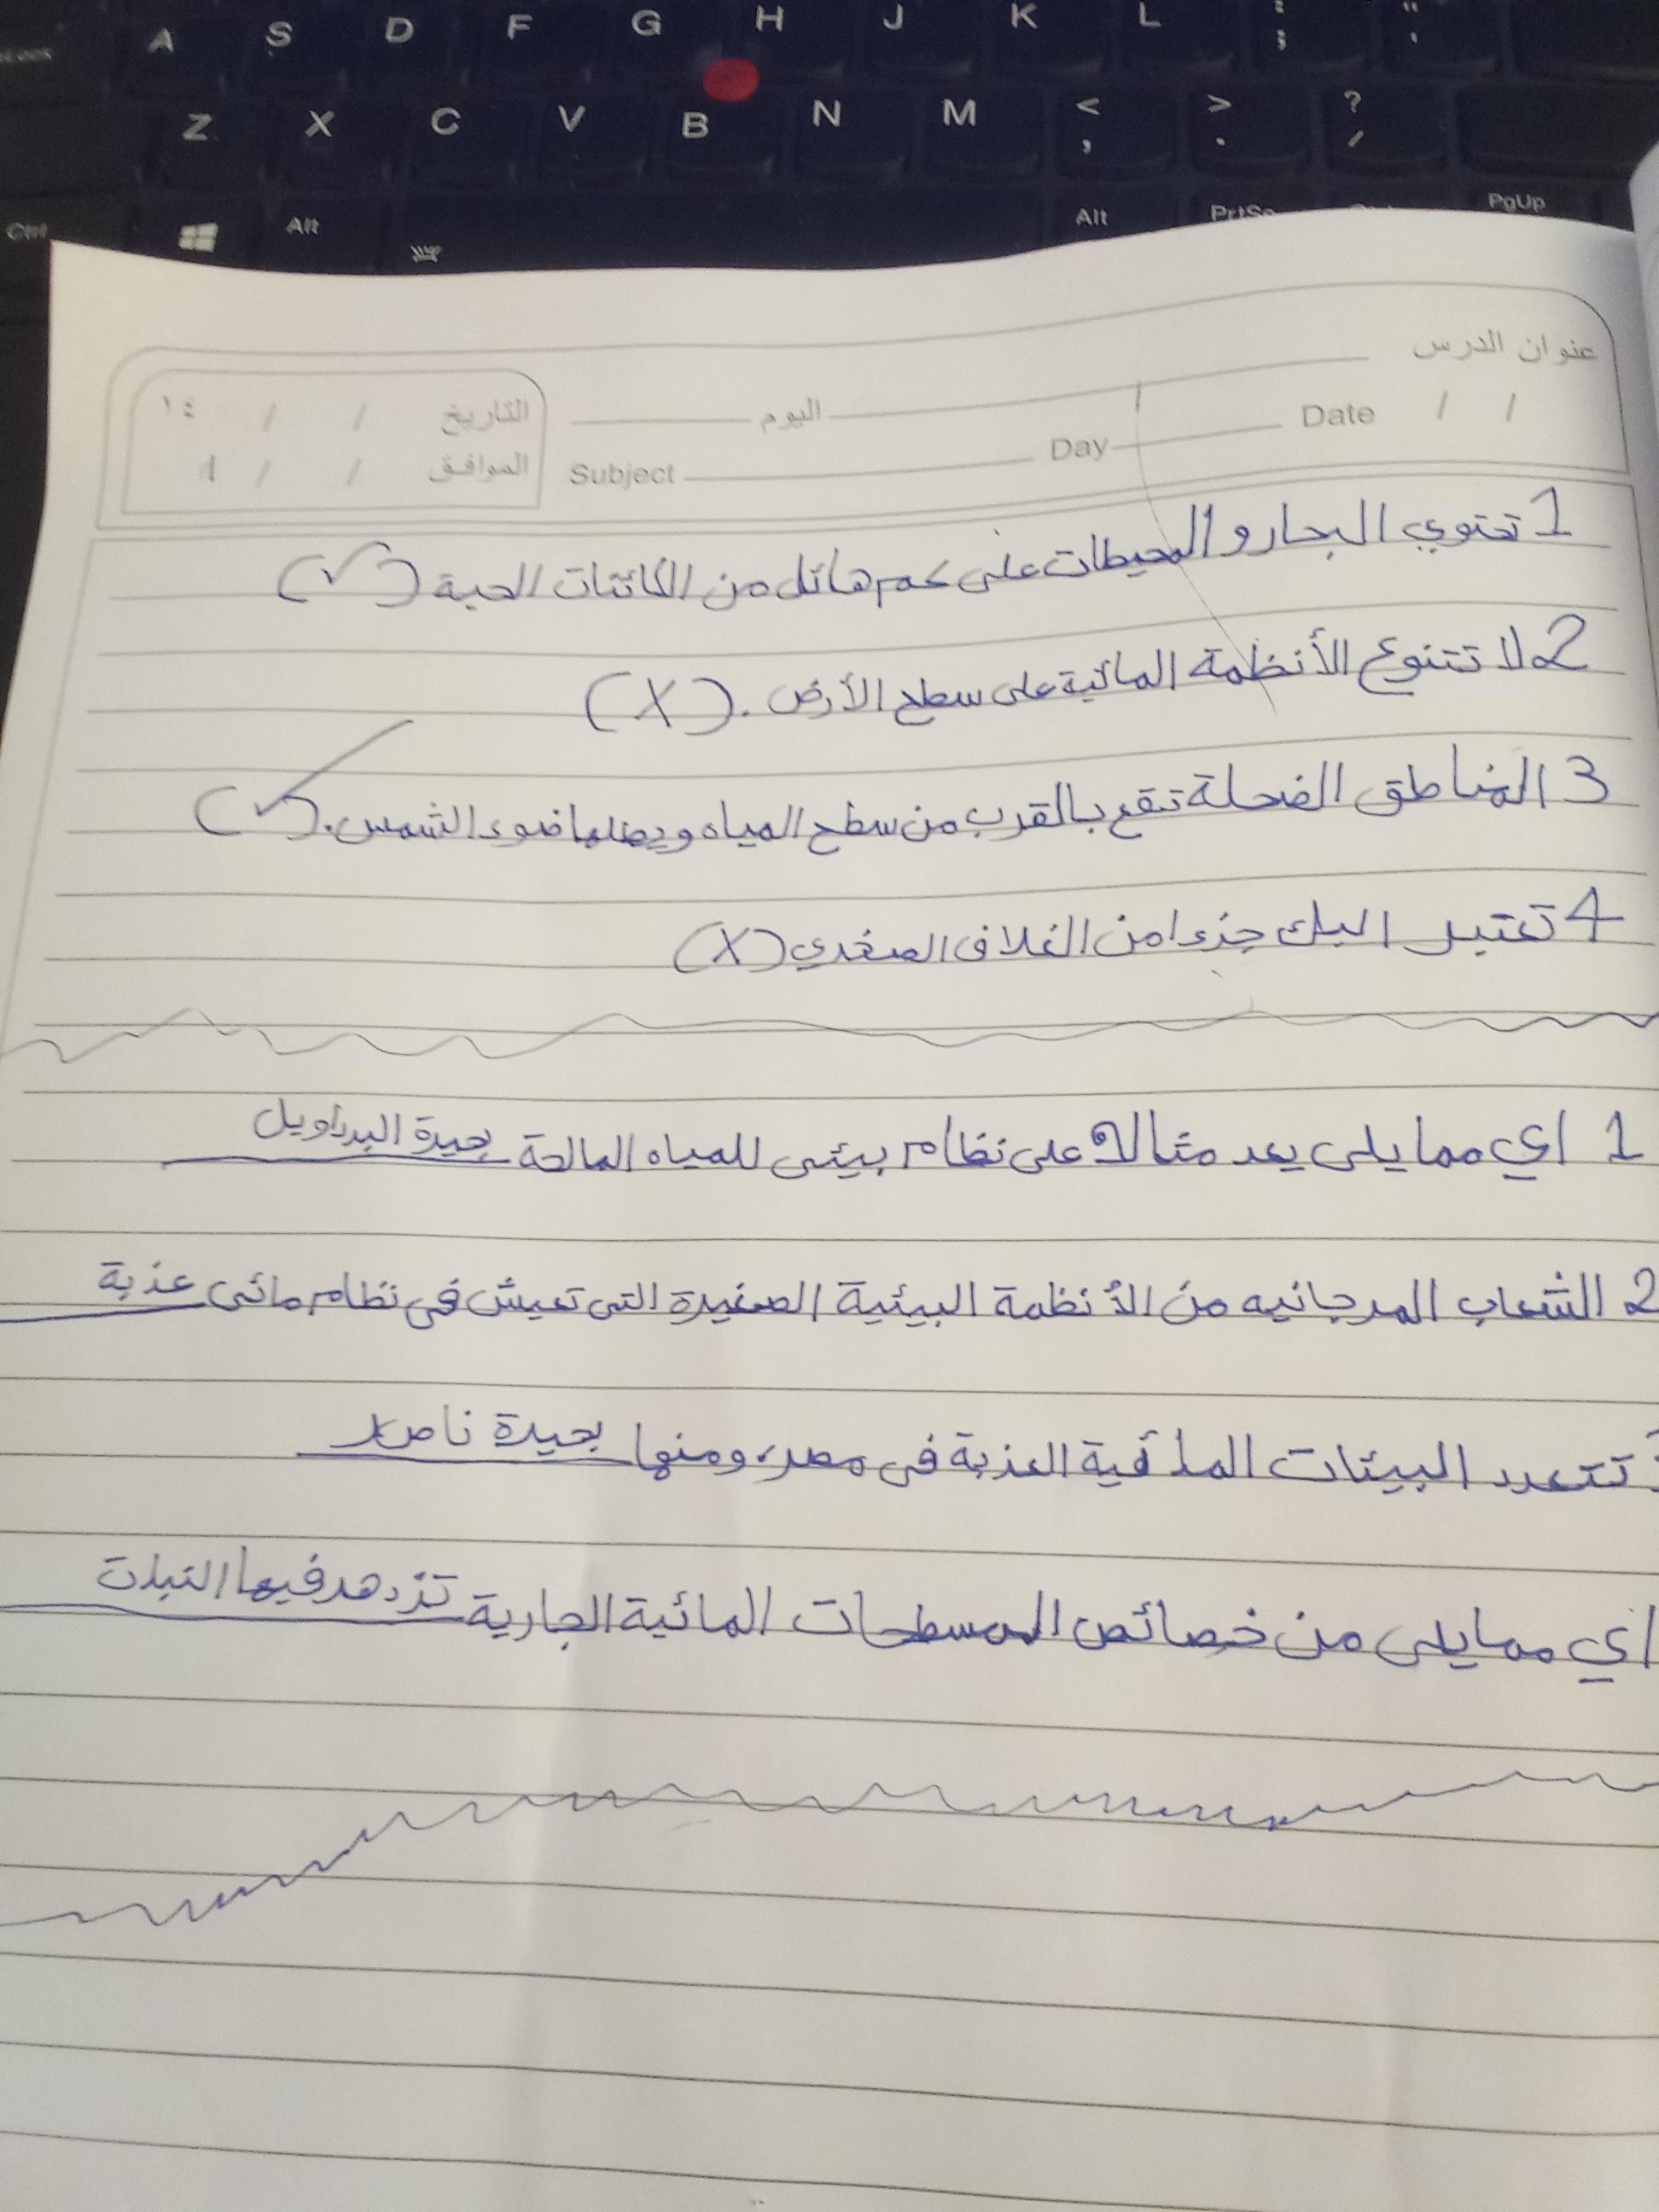 A S D F G H J K L : ; " '
Z X C V B N M < , > . ? /
Ctrl Alt Alt PrtSc PgUp
عنوان الدرس
التاريخ / / ١٤ اليوم
Date / / Day Subject الموافق / /
1 تحتوي البحار والمحيطات على كم هائل من الكائنات الحية (✓)
2 لا تتنوع الأنظمة المائية على سطح الأرض. (X)
3 المناطق الضحلة تقع بالقرب من سطح المياه ويصلها ضوء الشمس. (✓)
4 تعتبر البرك جزءا من الغلاف الصخري (X)
1 اي مما يلي يعد مثالا على نظام بيئى للمياه المالحة بحيرة البردويل
2 الشعاب المرجانيه من الأنظمة البيئية الصغيرة التى تعيش فى نظام مائى عذبة
تتعدد البيئات المائية العذبة فى مصر، ومنها بحيرة ناصر
اي مما يلى من خصائص المسطحات المائية الجارية تزدهر فيها النبات